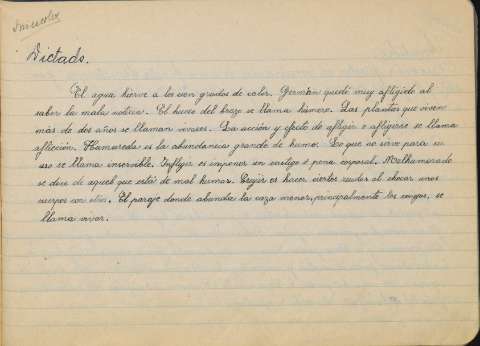 Miércoles
Dictado.
El agua hierve a los cien grados de calor. Germán quedó muy afligido al
saber la mala noticia. El hueso del brazo se llama húmero. Las plantas que viven
más de dos años se llaman vivaces. La acción y efecto de afligir o afligirse se llama
aflicción. Humareda es la abundancia grande de humo. Lo que no sirve para su
uso se llama inservible. Infligir es imponer un castigo o pena corporal. Malhumorado
se dice de aquel que está de mal humor. Crujir es hacer ciertos ruidos al chocar unos
cuerpos con otros. El paraje donde abunda la caza menor, principalmente los conejos, se
llama vivar.